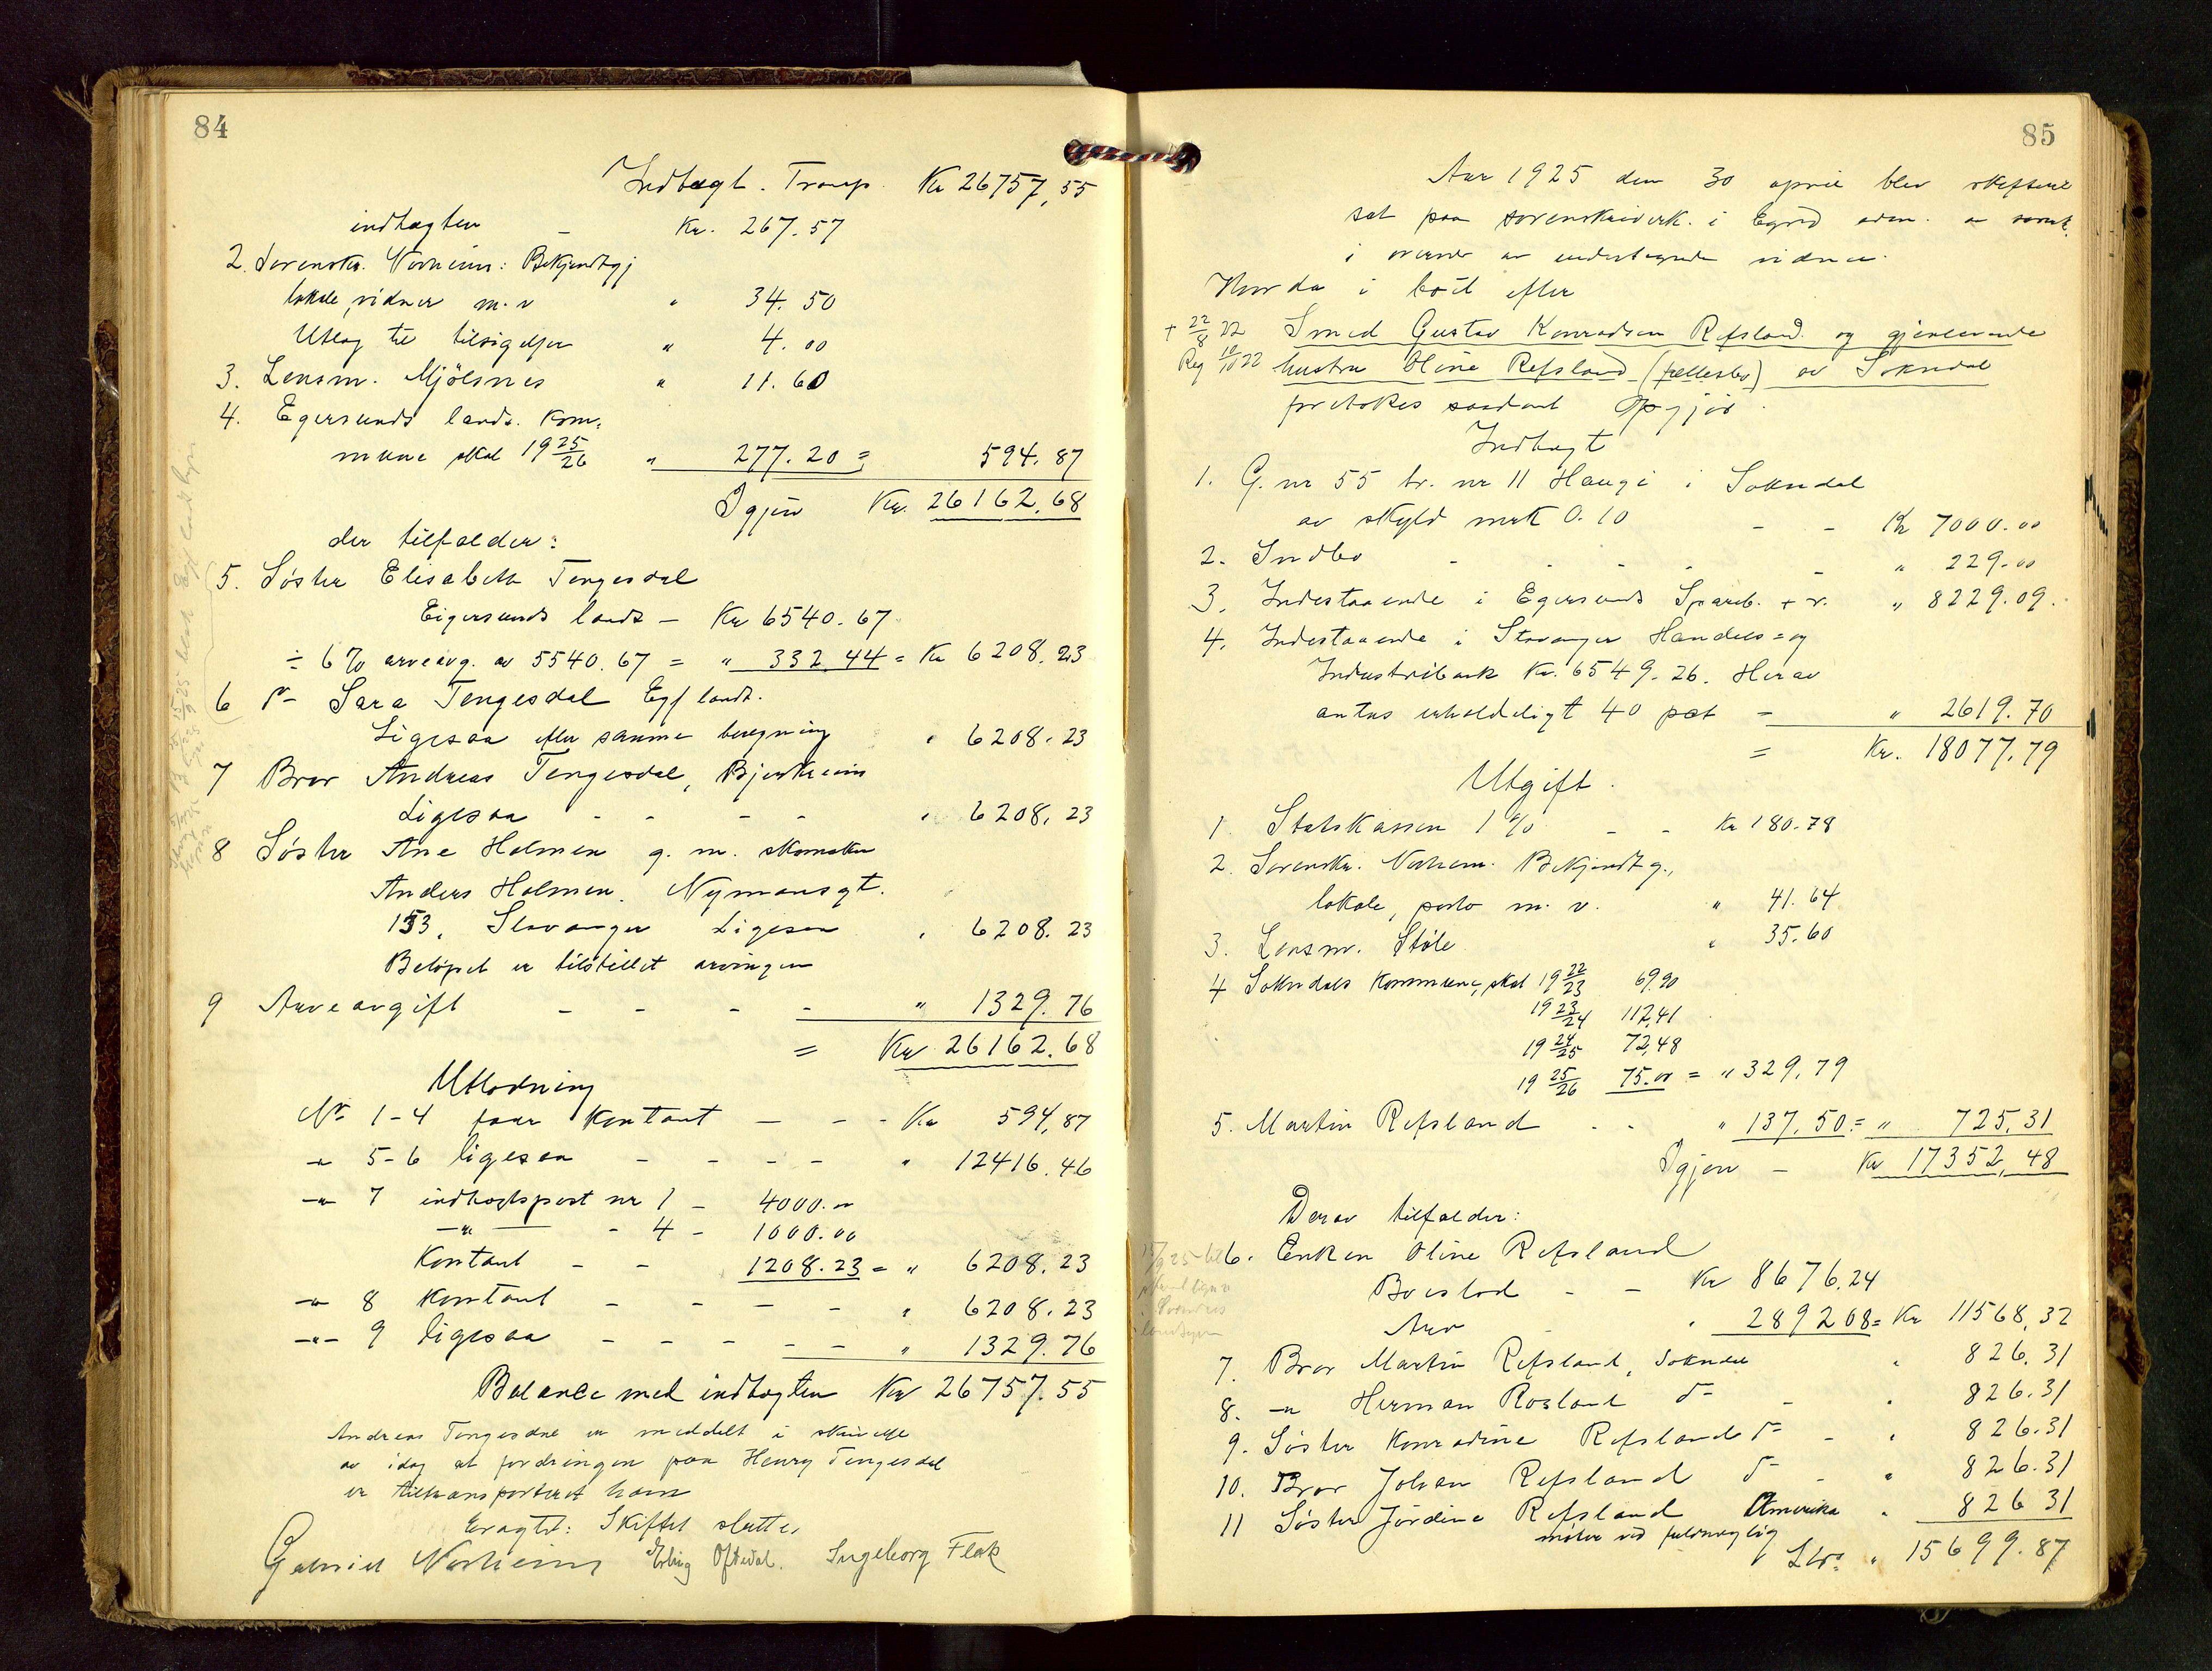 84
Indtægt. Transp. Kr 26757,55
indtægten – Kr. 267.57
2. Sorenskr. Norheim: Bekjendtgj
lokale, vidner m.v " 34.50
Utlæg til tilsigelser " 4.00
3. Lensm. Mjölsnes " 11.60
4. Egersunds lands. kom-
mune skat 19 25/26 " 277.20 = 594.87
Igjen Kr. 26162.68
der tilfalder:
5. Søster Elisabeth Tengesdal
Eigersunds lands – Kr 6540.67
÷ 6% arveavg. av 5540.67 = " 332.44 = Kr 6208.23
6 d° Sara Tengesdal Eg landt.
Ligesaa efter samme beregning " 6208.23
7 Bror Andreas Tengesdal, Bjerkreim
Ligesaa - - - - " 6208.23
8 Søster Ane Holmen g. m. skomaker
Anders Holmen. Nymansgt.
153, Stavanger Ligesaa " 6208.23
Beløpet er tilstillet arvingen
9 Arveavgift - - - - " 1329.76
= Kr 26162.68
Utlodning
Nr 1-4 faar kontant – - - Kr 594,87
-"- 5-6 ligesaa - - - - " 12416.46
-"- 7 indtægtspost nr 1 - 4000.00
-"- - 4 - 1000.00
Kontant - - 1208.23 = " 6208.23
-"- 8 kontant - - - - " 6208.23
-"- 9 ligesaa - - - - - " 1329.76
Balance med indtægten Kr 26757.55
Andreas Tengesdal er meddelt i skrivelse
av idag at fordringen paa Henry Tengesdal
er tiltransporteret ham
Eragtet: Skiftet sluttes
Gabriel Norheim Erling Oftedal. Ingeborg Flak
85
Aar 1925 den 30 april blev skifteret
sat paa sorenskriverk. i Egrsd adm. av sorsk.
i overvær av undertegnede vidner.
Hvor da i boet efter
+ 22/8 22 Smed Gustav Konradsen Refsland og gjenlevende
Reg 10/10 22 hustru Oline Refsland (fællesbo) av Sokndal
foretokes saadant Opgjör.
Indtægt
1. G. nr 55 br. nr 11 Haugi i Sokndal
av skyld mrk 0.10 - - Kr 7000.00
2. Indbo - - - - - " 229.00
3. Indestaaende i Egersunds Spareb. + r. " 8229.09.
4. Indestaaende i Stavanger Handels- og
Industribank Kr. 6549.26. Herav
antas erholdeligt 40 pct – " 2619.70
= Kr. 18077.79
Utgift.
1. Statskassen 1% - - Kr 180.78
2. Sorenskr. Norheim. Bekjendtg.,
lokale, porto m. v. " 41.64
3. Lensm. Støle " 35.60
4 Sokndals kommune, skat 19 22/23 69.90
19 23/24 112,41
19 24/25 72,48
19 25/26 75.00 = " 329,79
5. Martin Refsland - - " 137.50 = " 725,31
Igjen – Kr 17352,48
Derav tilfalder:
6. Enken Oline Refsland
Boeslod - - Kr 8676,24
Arv - " 2892 08 = Kr 11568,32
7. Bror Martin Refsland, Sokndal " 826.31
8. -"- Herman Rosland d° - " 826.31
9. Søster Konradine Refsland d° - " 826.31
10. Bror Johan Refsland d° - " 826.31
11 Søster Jördine Refsland Amerika " 826 31
møter ved fuldmægtig
Ltr. " 15699.87